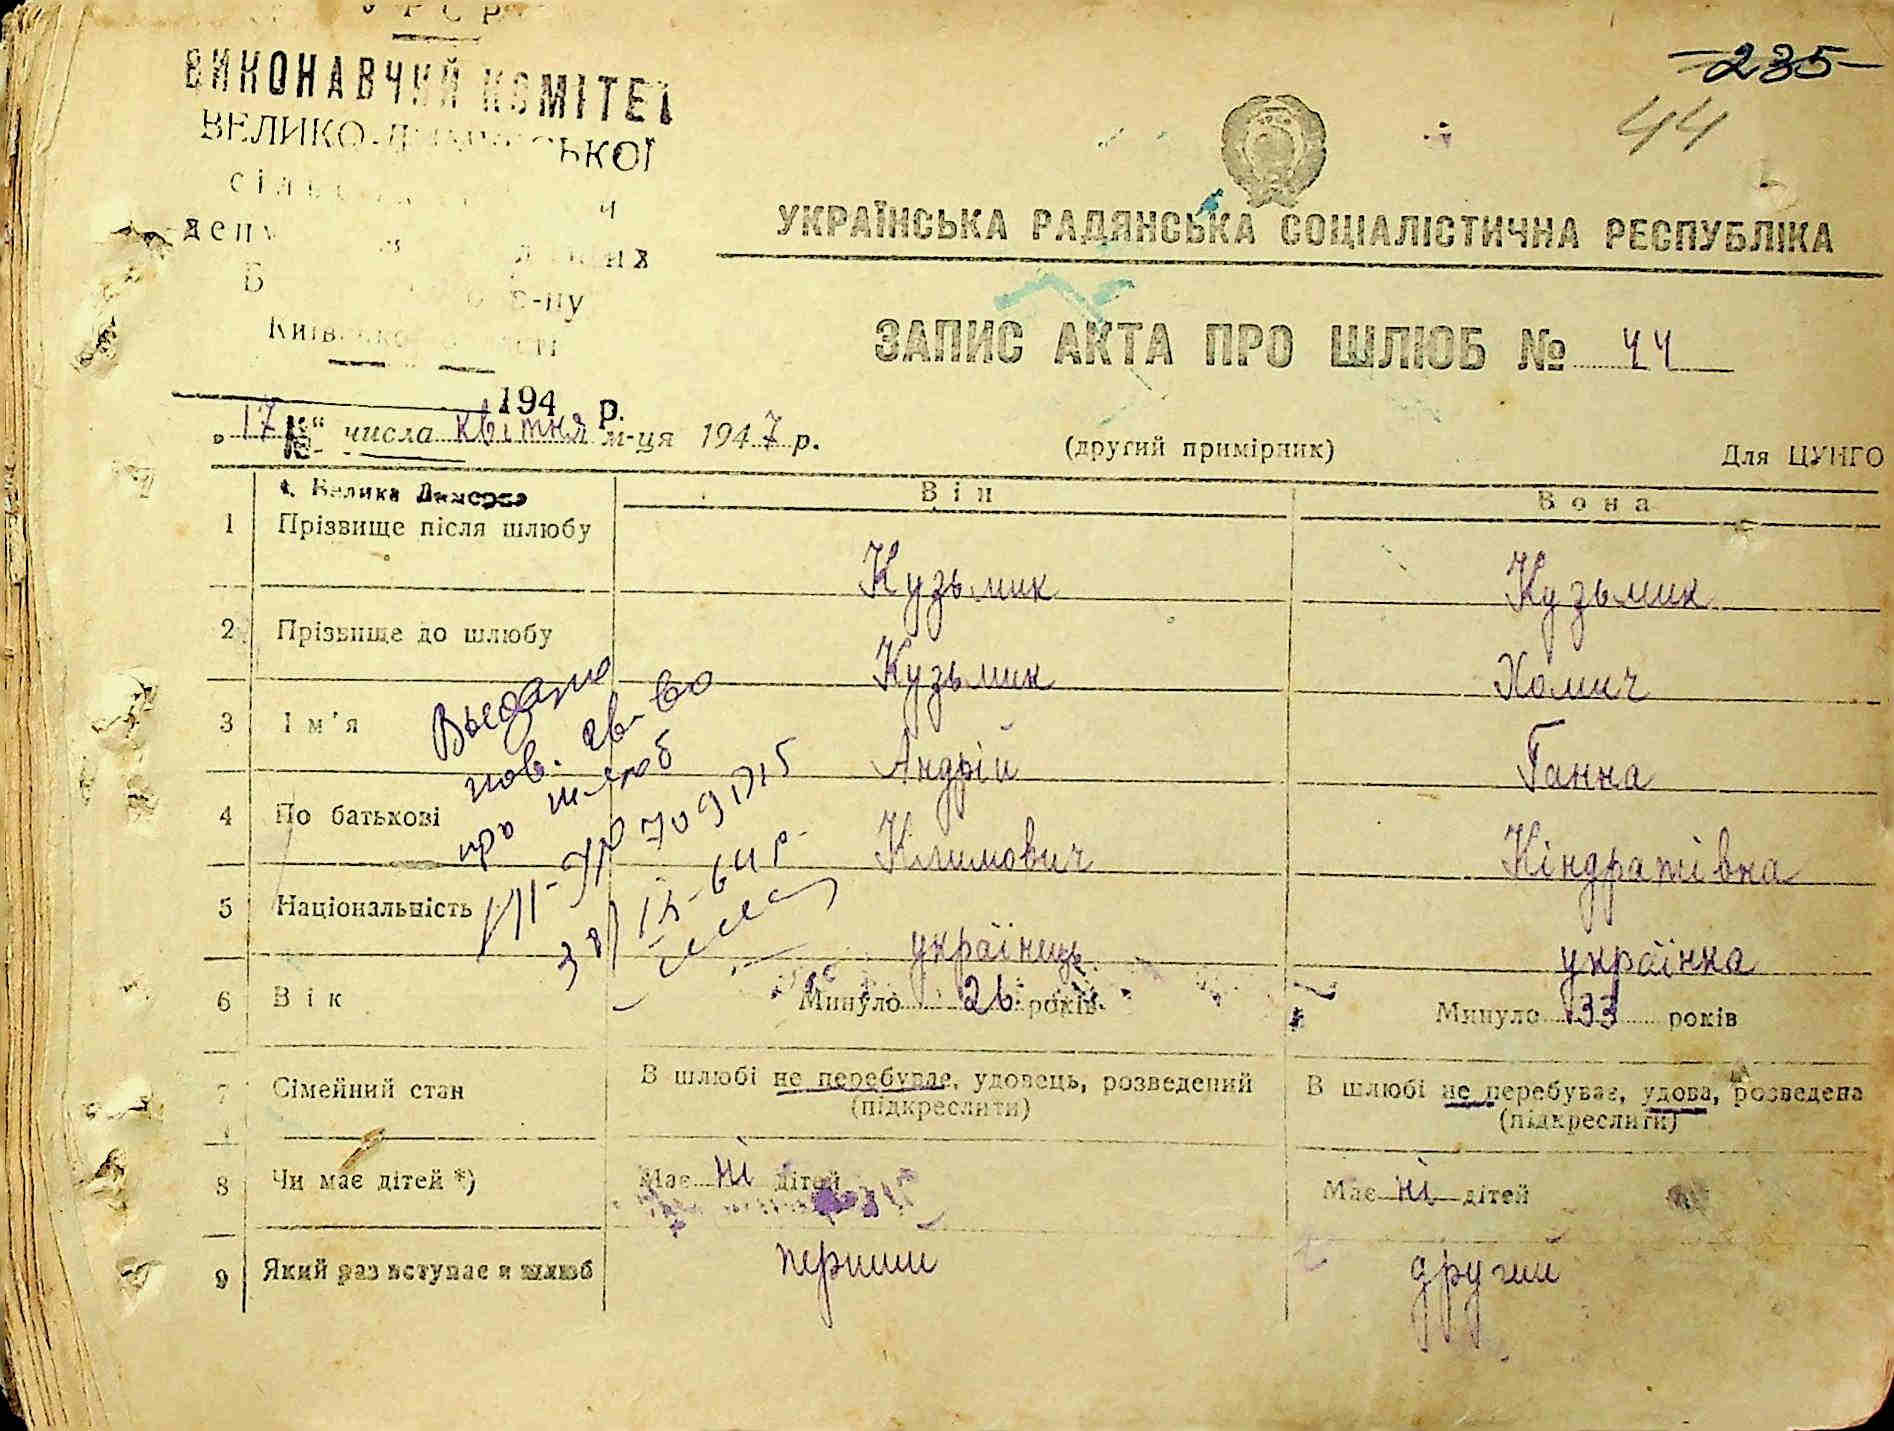 УРСР
ВИКОНАВЧИЙ КОМІТЕТ
ВЕЛИКО-ДИМЕРСЬКОЇ
р-ну
194 р.
-235-
44
УКРАЇНСЬКА РАДЯНСЬКА СОЦІАЛІСТИЧНА РЕСПУБЛІКА
ЗАПИС АКТА ПРО ШЛЮБ № 44
„17“ числа квітня м-ця 1947 р.
№
(другий примірник)
Для ЦУНГО
с. Велика Димерка
Він
Вона
1 Прізвище після шлюбу Кузьмик Кузьмик
2 Прізвище до шлюбу Кузьмик Хомич
3 Ім'я Андрій Ганна
4 По батькові Климович Кіндратівна
5 Національність українець українка
6 Вік Минуло 26 років Минуло 33 років
7 Сімейний стан В шлюбі не перебуває, удовець, розведений (підкреслити) В шлюбі не перебуває, удова, розведена (підкреслити)
8 Чи має дітей *) Має ні дітей Має ні дітей
9 Який раз вступає в шлюб перший другий
пов. св-во
про шлюб